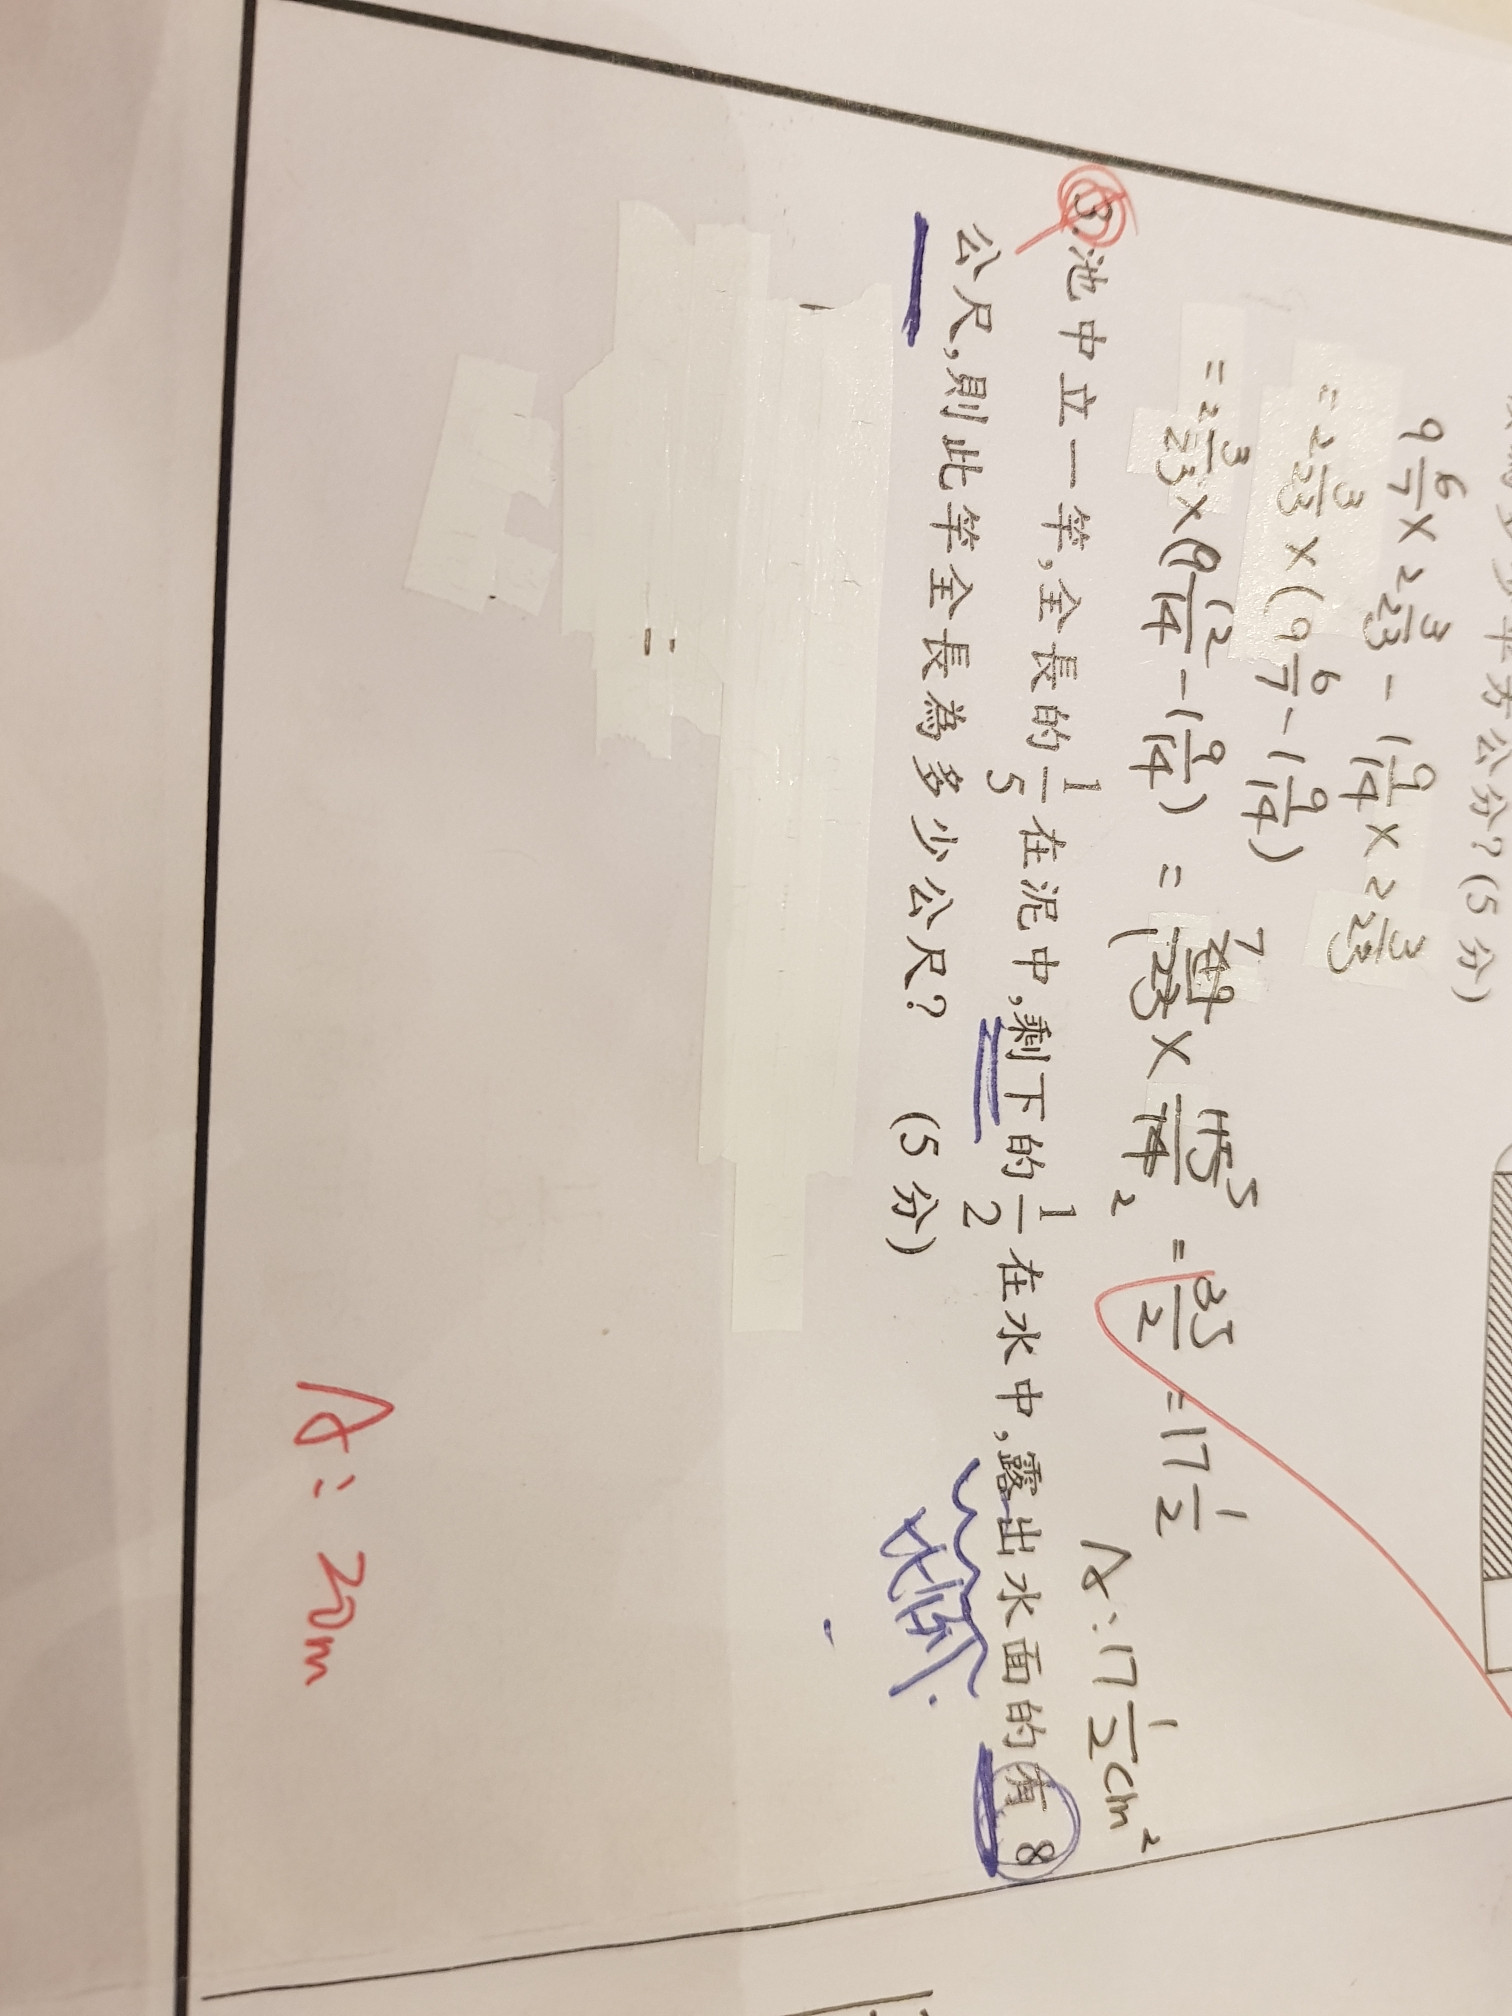 平方公分?(5分)
9 6/7 × 2 3/23 - 1 9/14 × 2 3/23
= 2 3/23 × (9 6/7 - 1 9/14)
= 2 3/23 × (9 12/14 - 1 9/14) = 49/23 × 115/14 = 35/2 = 17 1/2
7 1 5 2
A:17 1/2 cm²
3.池中立一竿,全長的1/5在泥中,剩下的1/2在水中,露出水面的有8
公尺,則此竿全長為多少公尺? (5分)
比例
=
A: 20m